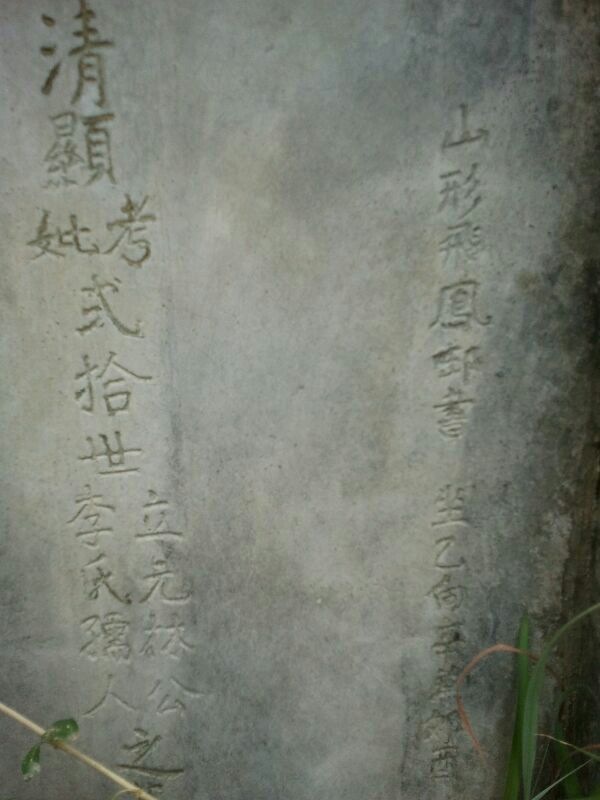 山形飛鳳 書 坐乙向辛 卯酉
清顯考妣弍拾世立元林公李氏孺人之